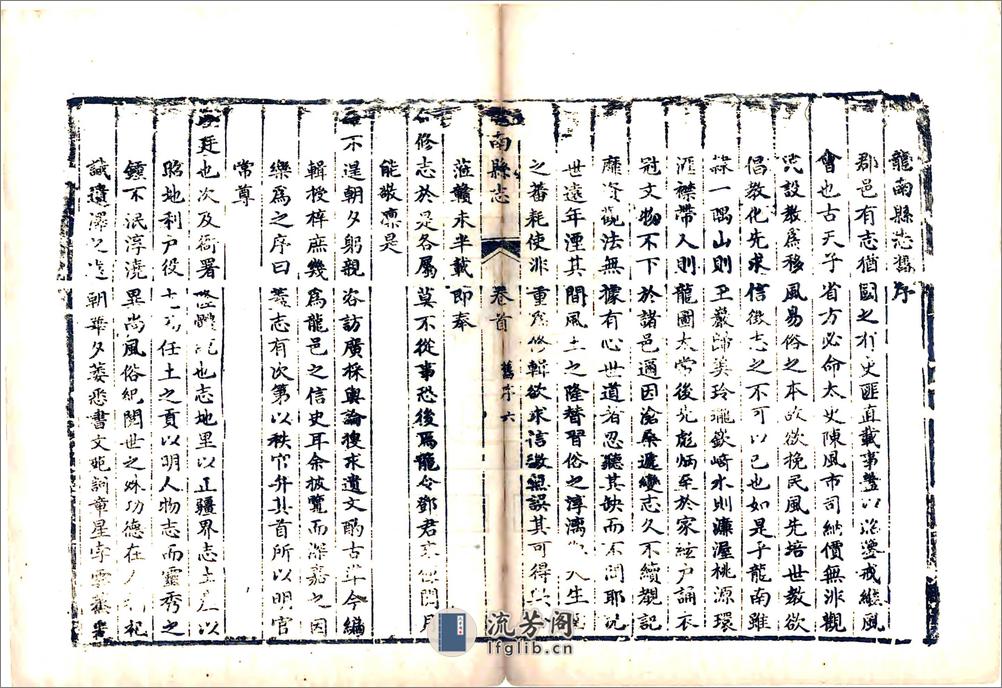 龍南縣志舊序
郡邑有志猶國之有史匪直載事豈以 戒繼風
會也古天子省方必命太史陳風市司納價無非觀
民設教爲移風易俗之本故欲挽民風先培世教欲
倡教化先求信徵志之不可以已也如是予龍南雖
一隅山則 巖歸美玲瓏嶔崎水則濂渥桃源環
匯襟帶人則龍圖太常後先彪炳至於家絃戶誦衣
冠文物不下於諸邑邇因滄桑遞變志久不續觀記
靡資觀法無據有心世道者忍聽其缺而不問耶况
世遠年湮其間風土之隆替習俗之淳漓 人生
之蕃耗使非重爲修輯欲求信徵無誤其可得
南縣志 卷首 舊序 六
蒞贛未半載即奉
修志於是各屬莫不從事恐後爲龍令鄧君 閱月
能敬凛是
不遑朝夕躬親咨訪廣採輿論搜求遺文酌古 今編
輯授梓庶幾爲龍邑之信史耳余披覽而深嘉之因
樂爲之序曰 志有次第以秩官弁其首所以明官
常尊
廷也次及衙署 體 也志地里以正疆界志土 以
昭地利戶役 任土之貢以明人物志而靈秀之
鍾不泯淳澆異尚風俗紀閱世之殊功德在 祀
識遺澤之 朝華夕萎悉書文苑訓章星字雲